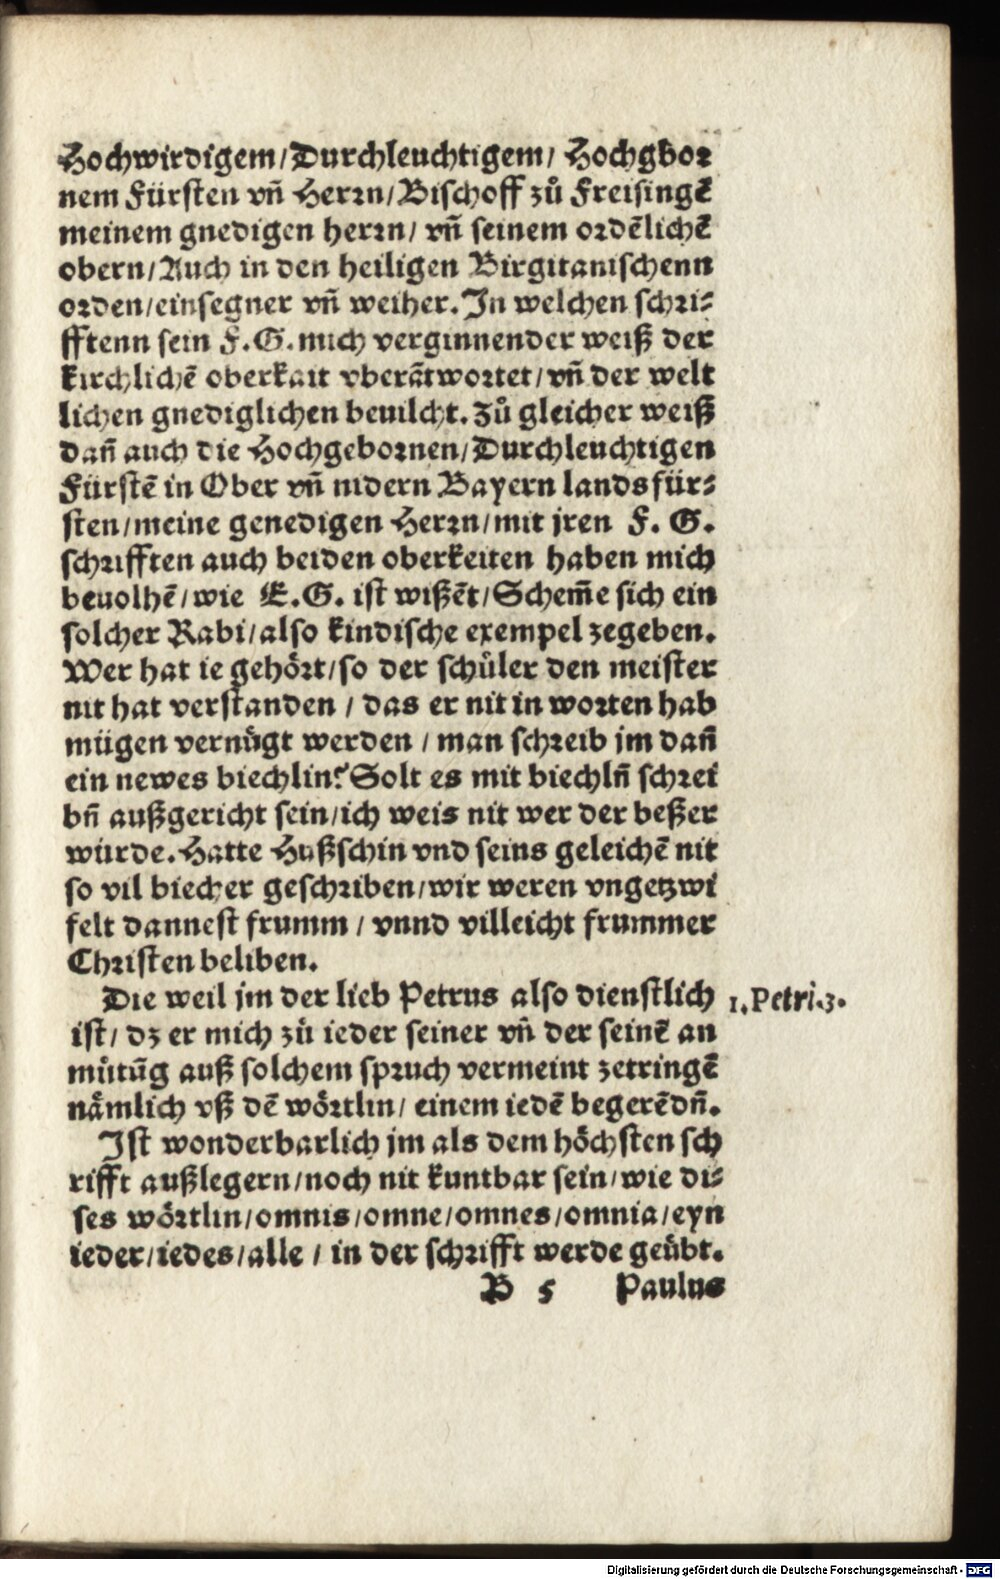 Hochwirdigem/Durchleuchtigem/ Hochgbor
nem Fürsten vñ Herrn/Bischoff zů Freisingẽ
meinem gnedigen herrn/ vñ seinem ordẽlichẽ
obern/Auch in den heiligen Birgitanischenn
orden/einsegner vñ weiher. In welchen schri⸗
fftenn sein F.G. mich verginnender weiß der
kirchlichẽ oberkait vberãtwortet/ vñ der welt
lichen gnediglichen beuilcht. Zů gleicher weiß
dañ auch die Hochgebornen/Durchleuchtigen
Fürstẽ in Ober vñ nidern Bayern landsfür⸗
sten/meine genedigen Herrn/mit jren F. G.
schrifften auch beiden oberkeiten haben mich
beuolhẽ/wie E.G. ist wißẽt/Schem̃e sich ein
solcher Rabi/also kindische exempel zegeben.
Wer hat ie gehört/so der schůler den meister
nit hat verstanden / das er nit in worten hab
mügen vernůgt werden / man schreib jm dañ
ein newes biechlin? Solt es mit biechlñ schrei
bñ außgericht sein/ich weis nit wer der beßer
würde. Hatte Hußschin vnd seins geleichẽ nit
so vil biecher geschriben/wir weren vngetzwi
felt dannest frumm / vnnd villeicht frummer
Christen beliben.
Die weil jm der lieb Petrus also dienstlich
1. Petri.3.
ist/ dz er mich zů ieder seiner vñ der seinẽ an
můtũg auß solchem spruch vermeint zetringẽ
nämlich vß dẽ wörtlin/ einem iedẽ begerẽdñ.
Ist wonderbarlich jm als dem höchsten sch
rifft außlegern/noch nit kuntbar sein/wie di⸗
ses wörtlin/omnis/omne/omnes/omnia/eyn
ieder/iedes/alle / in der schrifft werde geübt.
B 5 Paulus
Digitalisierung gefördert durch die Deutsche Forschungsgemeinschaft - DFG